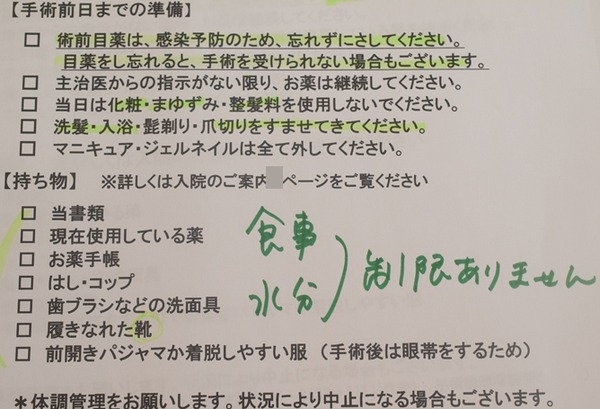 【手術前日までの準備】
□ 術前目薬は、感染予防のため、忘れずにさしてください。
目薬をし忘れると、手術を受けられない場合もございます。
□ 主治医からの指示がない限り、お薬は継続してください。
□ 当日は化粧・まゆずみ・整髪料を使用しないでください。
□ 洗髪・入浴・髭剃り・爪切りをすませてきてください。
□ マニキュア・ジェルネイルは全て外してください。
【持ち物】 ※詳しくは入院のご案内 ページをご覧ください
□ 当書類
□ 現在使用している薬
□ お薬手帳
□ はし・コップ
□ 歯ブラシなどの洗面具
□ 履きなれた靴
□ 前開きパジャマか着脱しやすい服 (手術後は眼帯をするため)
食事
水分
制限ありません
*体調管理をお願いします。状況により中止になる場合もございます。